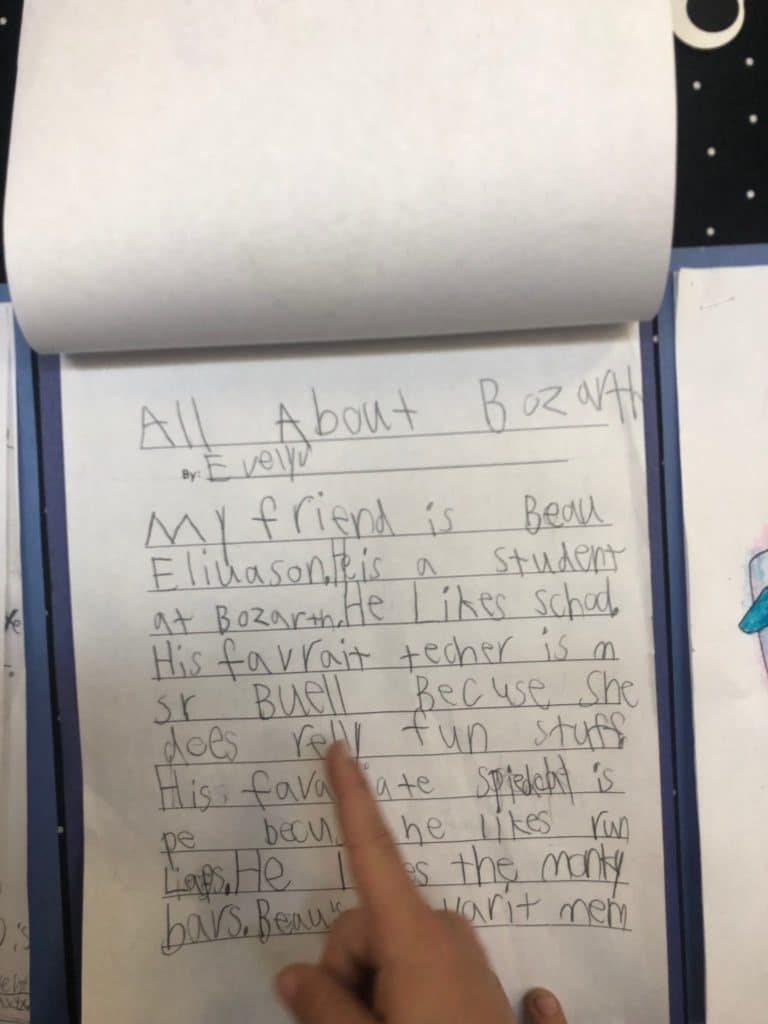 All About Bozarth
By: Evelyn
My friend is Beau
Eliuason. He is a student
at Bozarth. He Likes school.
His favrait techer is m
sr Buell Becuse she
does relly fun stuff.
His fava ate is
pe becu he likes run
Laps. He l es the monky
bars. Beau's varit mem